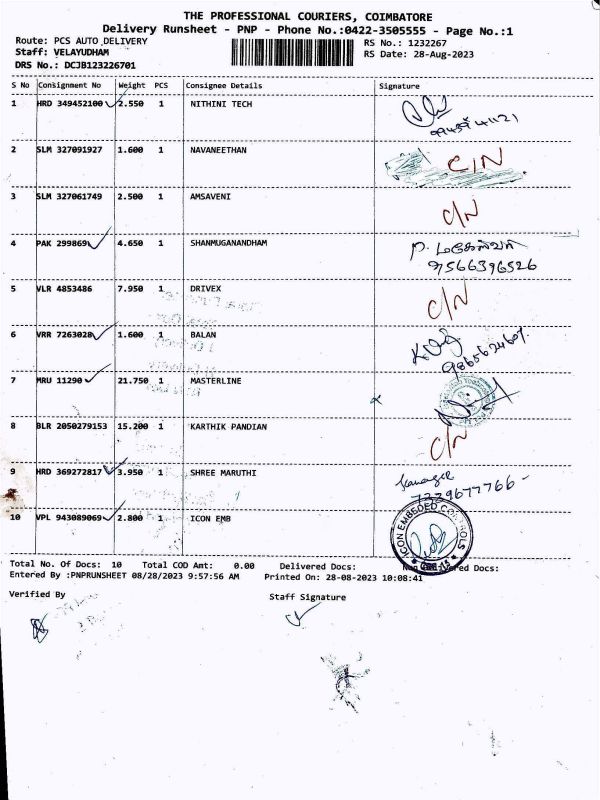 THE PROFESSIONAL COURIERS, COIMBATORE
Delivery Runsheet - PNP - Phone No.:0422-3505555 - Page No.:1
Route: PCS AUTO DELIVERY RS No.: 1232267
Staff: VELAYUDHAM RS Date: 28-Aug-2023
DRS No.: DCJB123226701
S No Consignment No Weight PCS Consignee Details Signature
1 HRD 349452100 2.550 1 NITHINI TECH
2 SLM 327091927 1.600 1 NAVANEETHAN C/N
3 SLM 327061749 2.500 1 AMSAVENI C/N
4 PAK 299869 4.650 1 SHANMUGANANDHAM
9566396526
5 VLR 4853486 7.950 1 DRIVEX C/N
6 VRR 7263028 1.600 1 BALAN
7 MRU 11290 21.750 1 MASTERLINE
8 BLR 2050279153 15.200 1 KARTHIK PANDIAN C/N
9 HRD 369272817 3.950 1 SHREE MARUTHI
7339677766
10 VPL 943089069 2.800 1 ICON EMB ICON EMBEDED CONTROLS
Total No. Of Docs: 10 Total COD Amt: 0.00 Delivered Docs: Non Delivered Docs:
Entered By :PNPRUNSHEET 08/28/2023 9:57:56 AM Printed On: 28-08-2023 10:08:41
Verified By Staff Signature